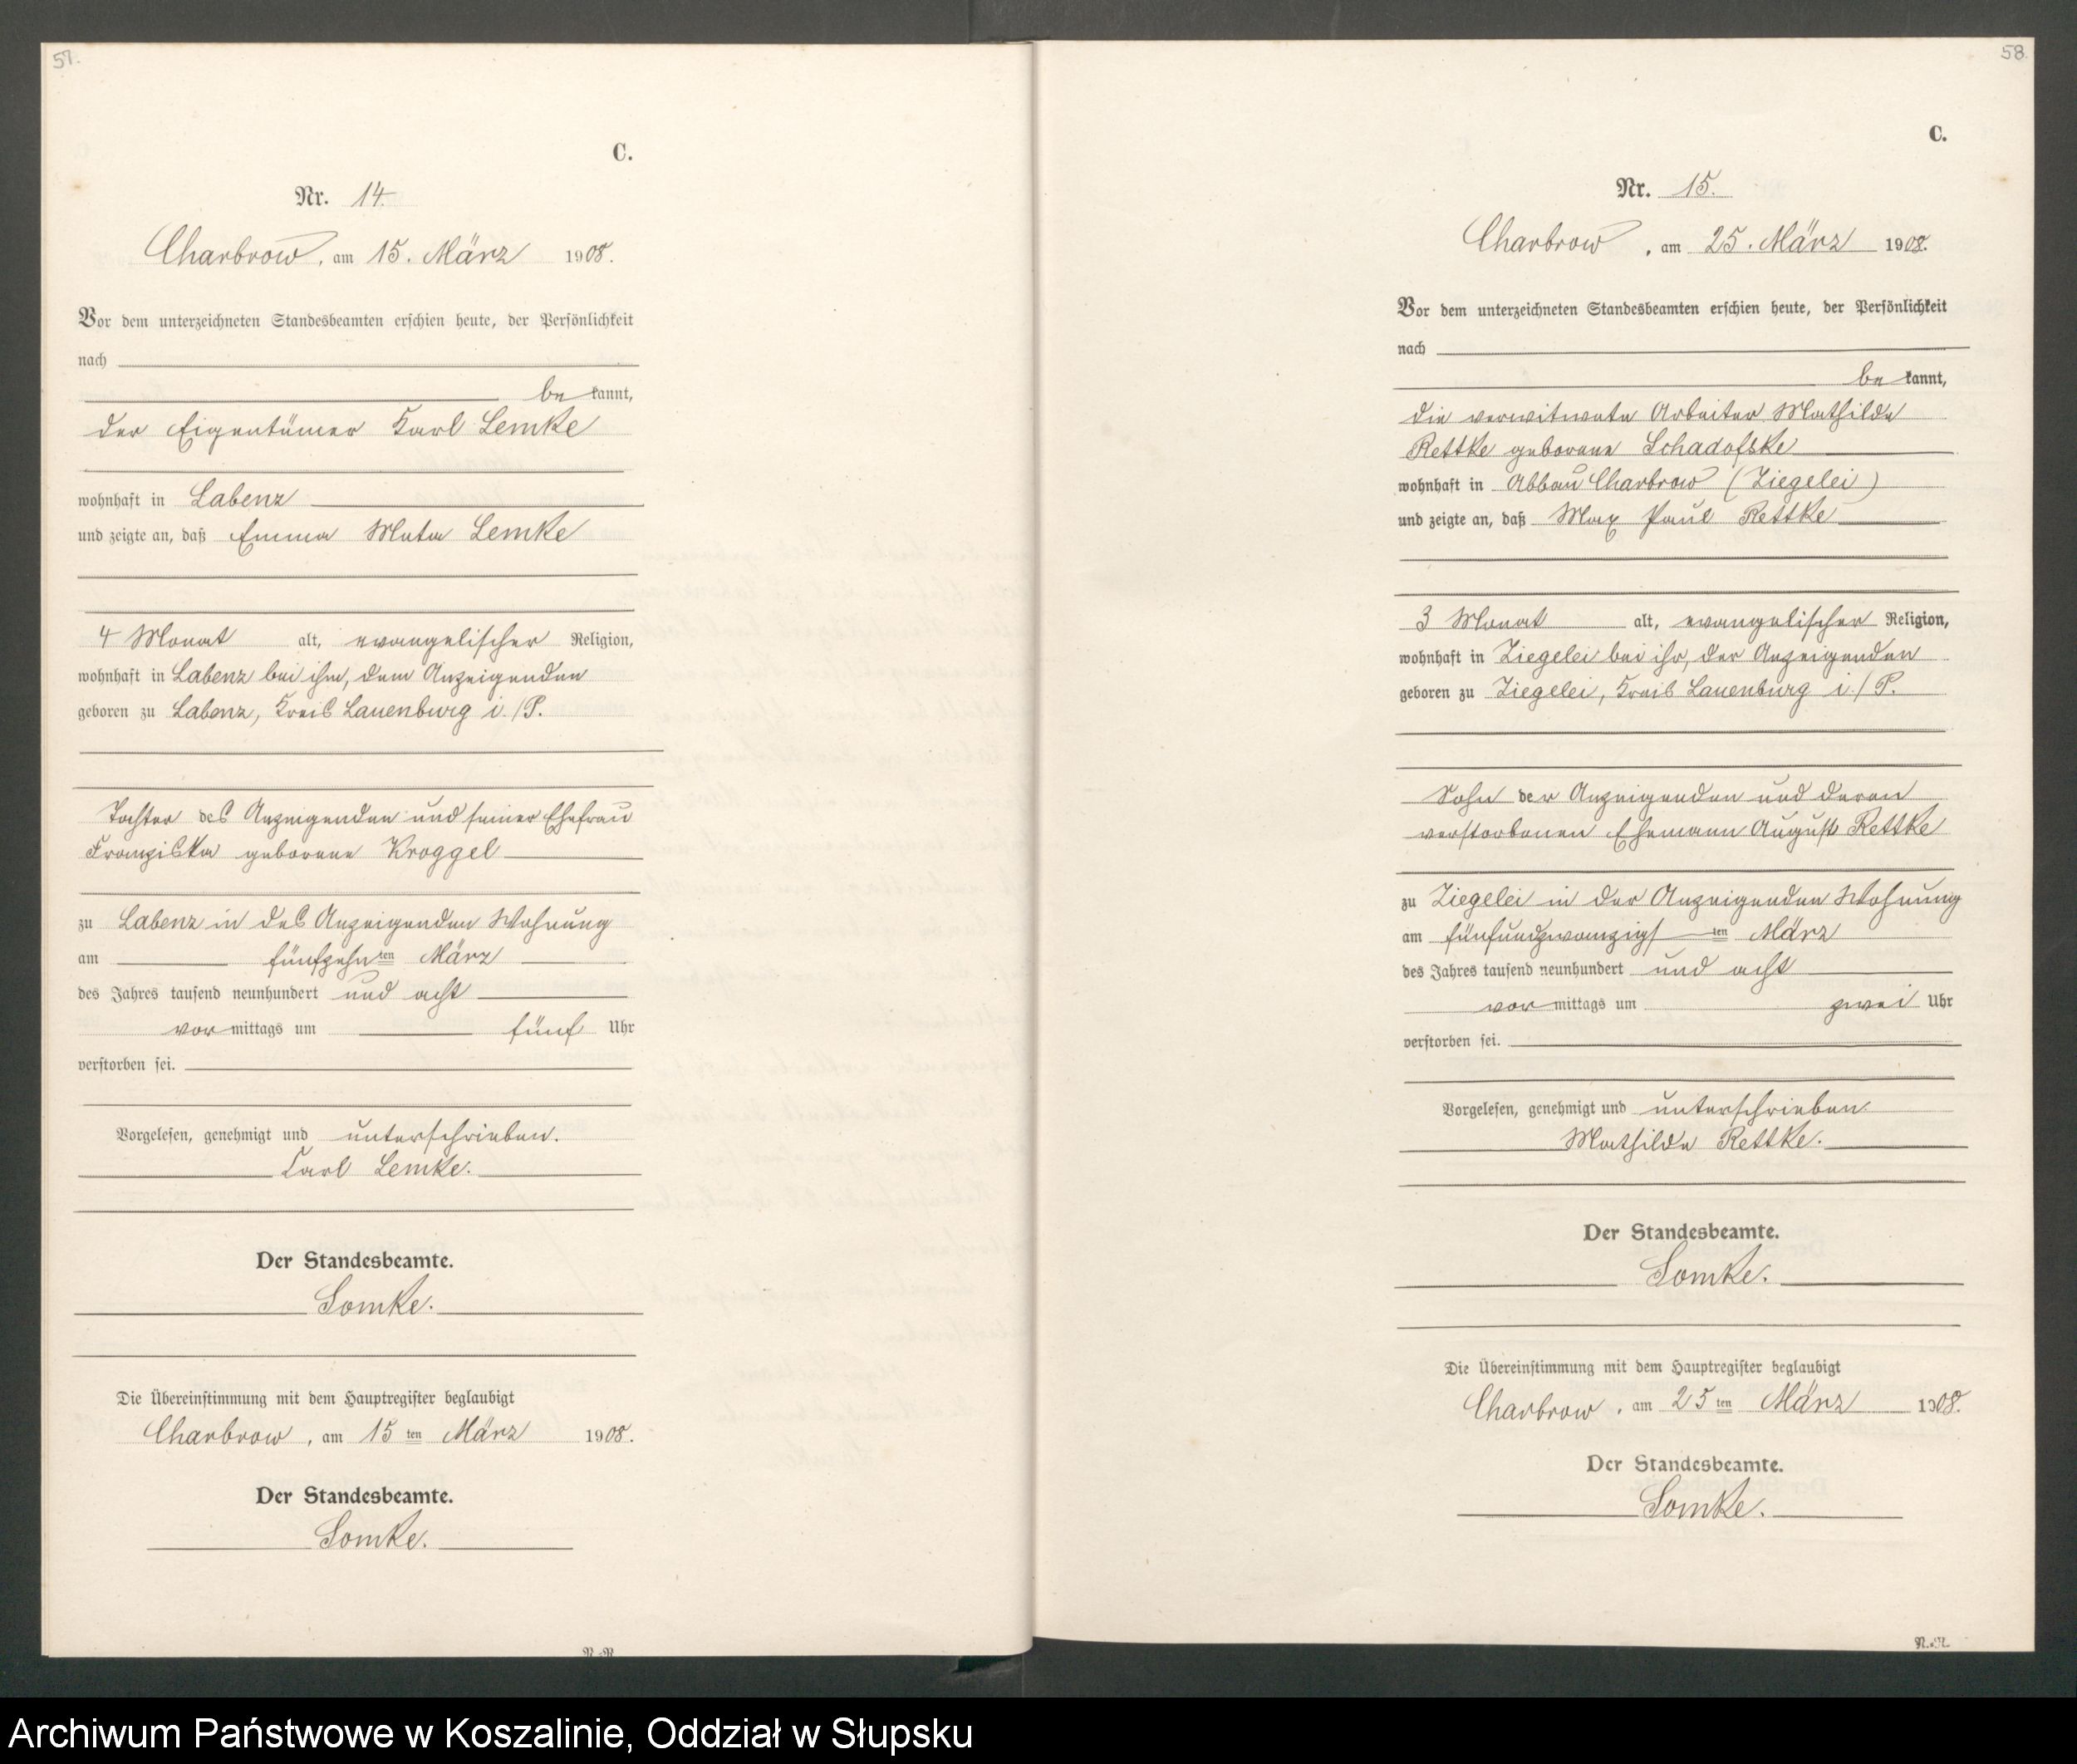 57.
C.
Nr. 14.
Charbrow, am 15. März 1908.
Vor dem unterzeichneten Standesbeamten erschien heute, der Persönlichkeit
nach
bekannt,
der Eigentümer Karl Lemke
wohnhaft in Labenz
und zeigte an, daß Emma Meta Lemke
4 Monat alt, evangelischer Religion,
wohnhaft in Labenz bei ihm, dem Anzeigenden
geboren zu Labenz, Kreis Lauenburg i./P.
Tochter des Anzeigenden und seiner Ehefrau
Franziska geborene Kroggel
zu Labenz in des Anzeigenden Wohnung
am fünfzehnten März
des Jahres tausend neunhundert und acht
vormittags um fünf Uhr
verstorben sei.
Vorgelesen, genehmigt und unterschrieben.
Karl Lemke.
Der Standesbeamte.
Somke.
Die Übereinstimmung mit dem Hauptregister beglaubigt
Charbrow, am 15ten März 1908.
Der Standesbeamte.
Somke.
58.
C.
Nr. 15.
Charbrow, am 25. März 1908.
Vor dem unterzeichneten Standesbeamten erschien heute, der Persönlichkeit
nach
bekannt,
die verwitwete Arbeiter Mathilde
Rettke geborene Schadofske
wohnhaft in Abbau Charbrow (Ziegelei)
und zeigte an, daß Max Paul Rettke
3 Monat alt, evangelischer Religion,
wohnhaft in Ziegelei bei ihr, der Anzeigenden
geboren zu Ziegelei, Kreis Lauenburg i./P.
Sohn der Anzeigenden und deren
verstorbenen Ehemann August Rettke
zu Ziegelei in der Anzeigenden Wohnung
am fünfundzwanzigsten März
des Jahres tausend neunhundert und acht
vormittags um zwei Uhr
verstorben sei.
Vorgelesen, genehmigt und unterschrieben.
Mathilde Rettke.
Der Standesbeamte.
Somke.
Die Übereinstimmung mit dem Hauptregister beglaubigt
Charbrow, am 25ten März 1908.
Der Standesbeamte.
Somke.
N.-N.
Archiwum Państwowe w Koszalinie, Oddział w Słupsku